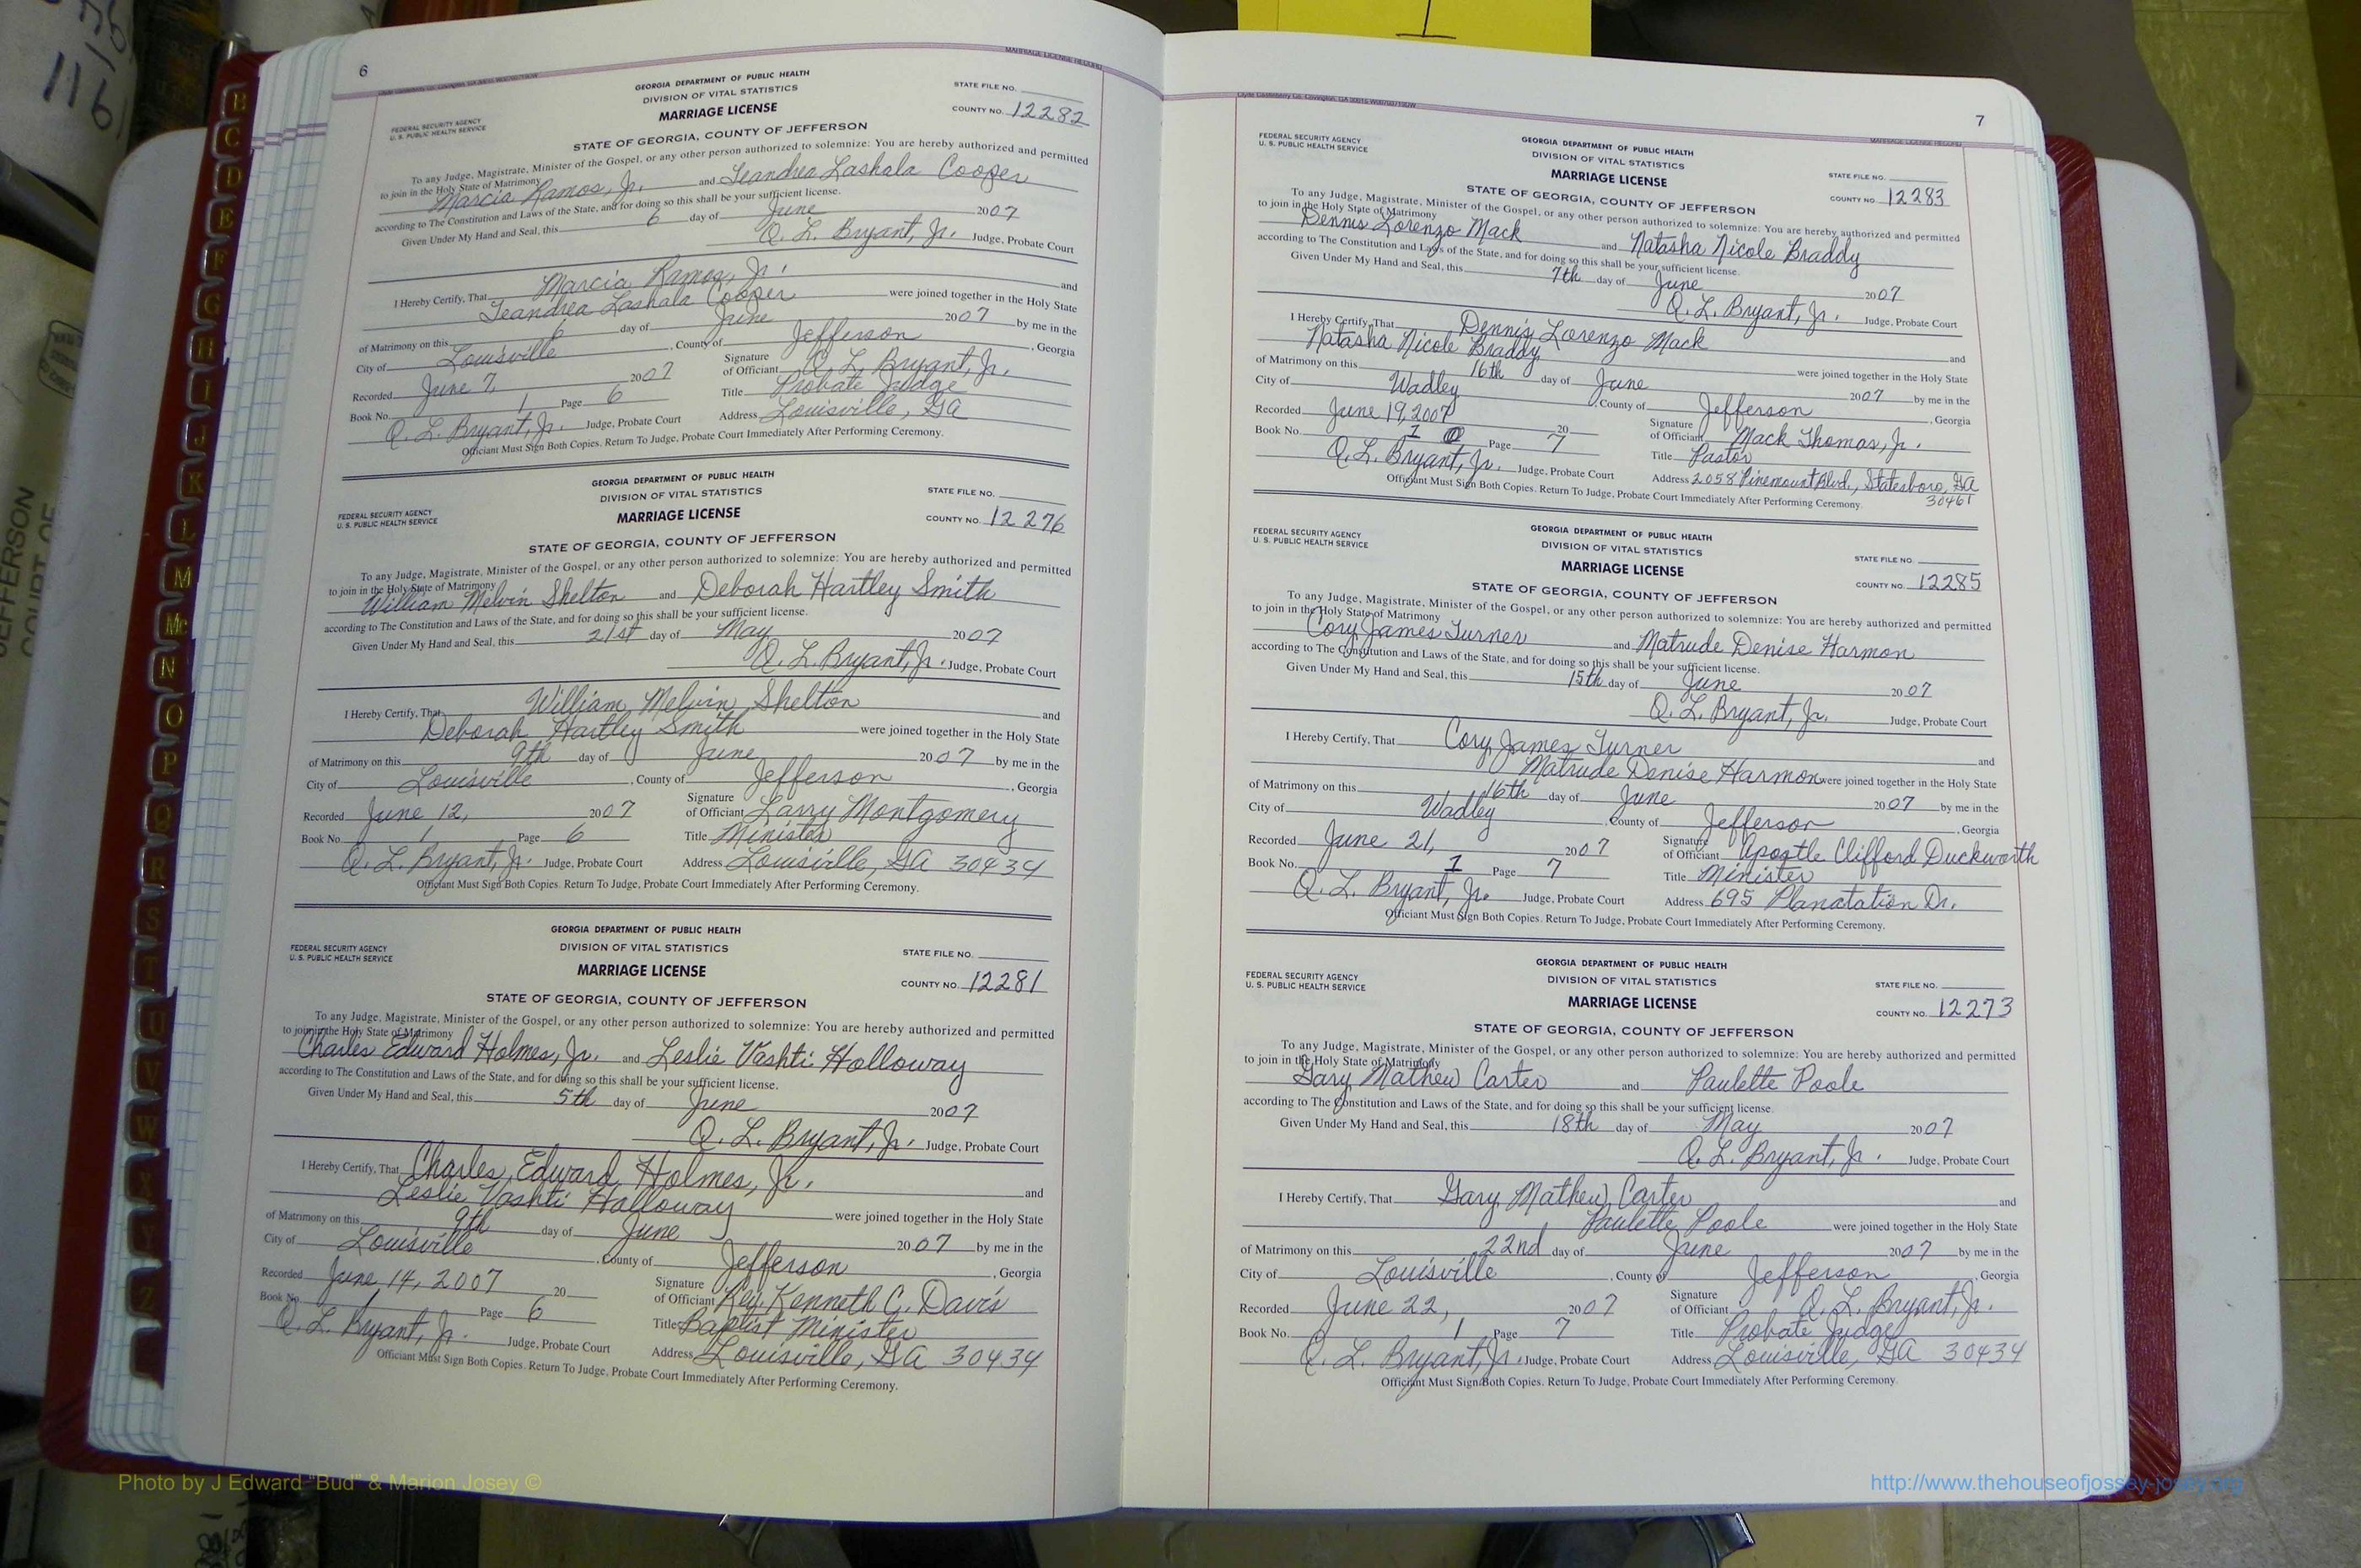 6
MARRIAGE LICENSE RECORD
GEORGIA DEPARTMENT OF PUBLIC HEALTH
DIVISION OF VITAL STATISTICS
MARRIAGE LICENSE
STATE FILE NO.
COUNTY NO. 12282
FEDERAL SECURITY AGENCY
U. S. PUBLIC HEALTH SERVICE
STATE OF GEORGIA, COUNTY OF JEFFERSON
To any Judge, Magistrate, Minister of the Gospel, or any other person authorized to solemnize: You are hereby authorized and permitted
to join in the Holy State of Matrimony
Marcia Ramos, Jr. and Teandrea Lashala Cooper
according to The Constitution and Laws of the State, and for doing so this shall be your sufficient license.
Given Under My Hand and Seal, this 6 day of June 2007
Q. L. Bryant, Jr. Judge, Probate Court
I Hereby Certify, That Marcia Ramos, Jr. and
Teandrea Lashala Cooper were joined together in the Holy State
of Matrimony on this 6 day of June 2007 by me in the
City of Louisville, County of Jefferson, Georgia
Recorded June 7, 2007 Signature of Officiant Q. L. Bryant, Jr.
Book No. 1 Page 6 Title Probate Judge
Q. L. Bryant, Jr. Judge, Probate Court Address Louisville, GA
Officiant Must Sign Both Copies. Return To Judge, Probate Court Immediately After Performing Ceremony.
GEORGIA DEPARTMENT OF PUBLIC HEALTH
DIVISION OF VITAL STATISTICS
MARRIAGE LICENSE
STATE FILE NO.
COUNTY NO. 12276
FEDERAL SECURITY AGENCY
U. S. PUBLIC HEALTH SERVICE
STATE OF GEORGIA, COUNTY OF JEFFERSON
To any Judge, Magistrate, Minister of the Gospel, or any other person authorized to solemnize: You are hereby authorized and permitted
to join in the Holy State of Matrimony
William Melvin Shelton and Deborah Hartley Smith
according to The Constitution and Laws of the State, and for doing so this shall be your sufficient license.
Given Under My Hand and Seal, this 21st day of May 2007
Q. L. Bryant, Jr. Judge, Probate Court
I Hereby Certify, That William Melvin Shelton and
Deborah Hartley Smith were joined together in the Holy State
of Matrimony on this 9th day of June 2007 by me in the
City of Louisville, County of Jefferson, Georgia
Recorded June 12, 2007 Signature of Officiant Larry Montgomery
Book No. 1 Page 6 Title Minister
Q. L. Bryant, Jr. Judge, Probate Court Address Louisville, GA 30434
Officiant Must Sign Both Copies. Return To Judge, Probate Court Immediately After Performing Ceremony.
GEORGIA DEPARTMENT OF PUBLIC HEALTH
DIVISION OF VITAL STATISTICS
MARRIAGE LICENSE
STATE FILE NO.
COUNTY NO. 12281
FEDERAL SECURITY AGENCY
U. S. PUBLIC HEALTH SERVICE
STATE OF GEORGIA, COUNTY OF JEFFERSON
To any Judge, Magistrate, Minister of the Gospel, or any other person authorized to solemnize: You are hereby authorized and permitted
to join in the Holy State of Matrimony
Charles Edward Holmes, Jr. and Leslie Vashti Holloway
according to The Constitution and Laws of the State, and for doing so this shall be your sufficient license.
Given Under My Hand and Seal, this 5th day of June 2007
Q. L. Bryant, Jr. Judge, Probate Court
I Hereby Certify, That Charles Edward Holmes, Jr. and
Leslie Vashti Halloway were joined together in the Holy State
of Matrimony on this 9th day of June 2007 by me in the
City of Louisville, County of Jefferson, Georgia
Recorded June 14, 2007 20 Signature of Officiant Rev. Kenneth C. Davis
Book No. 1 Page 6 Title Baptist Minister
Q. L. Bryant, Jr. Judge, Probate Court Address Louisville, GA 30434
Officiant Must Sign Both Copies. Return To Judge, Probate Court Immediately After Performing Ceremony.
7
MARRIAGE LICENSE RECORD
FEDERAL SECURITY AGENCY
U. S. PUBLIC HEALTH SERVICE
GEORGIA DEPARTMENT OF PUBLIC HEALTH
DIVISION OF VITAL STATISTICS
MARRIAGE LICENSE
STATE FILE NO.
COUNTY NO. 12283
STATE OF GEORGIA, COUNTY OF JEFFERSON
To any Judge, Magistrate, Minister of the Gospel, or any other person authorized to solemnize: You are hereby authorized and permitted
to join in the Holy State of Matrimony
Dennis Lorenzo Mack and Natasha Nicole Braddy
according to The Constitution and Laws of the State, and for doing so this shall be your sufficient license.
Given Under My Hand and Seal, this 7th day of June 2007
Q. L. Bryant, Jr. Judge, Probate Court
I Hereby Certify, That Dennis Lorenzo Mack and
Natasha Nicole Braddy were joined together in the Holy State
of Matrimony on this 16th day of June 2007 by me in the
City of Wadley, County of Jefferson, Georgia
Recorded June 19, 2007 20 Signature of Officiant Mack Thomas, Jr.
Book No. 1 Page 7 Title Pastor
Q. L. Bryant, Jr. Judge, Probate Court Address 2058 Pinemount Blvd., Statesboro, GA
30461
Officiant Must Sign Both Copies. Return To Judge, Probate Court Immediately After Performing Ceremony.
FEDERAL SECURITY AGENCY
U. S. PUBLIC HEALTH SERVICE
GEORGIA DEPARTMENT OF PUBLIC HEALTH
DIVISION OF VITAL STATISTICS
MARRIAGE LICENSE
STATE FILE NO.
COUNTY NO. 12285
STATE OF GEORGIA, COUNTY OF JEFFERSON
To any Judge, Magistrate, Minister of the Gospel, or any other person authorized to solemnize: You are hereby authorized and permitted
to join in the Holy State of Matrimony
Cory James Turner and Matrude Denise Harmon
according to The Constitution and Laws of the State, and for doing so this shall be your sufficient license.
Given Under My Hand and Seal, this 15th day of June 2007
Q. L. Bryant, Jr. Judge, Probate Court
I Hereby Certify, That Cory James Turner and
Matrude Denise Harmon were joined together in the Holy State
of Matrimony on this 16th day of June 2007 by me in the
City of Wadley, County of Jefferson, Georgia
Recorded June 21, 2007 Signature of Officiant Apostle Clifford Duckworth
Book No. 1 Page 7 Title Minister
Q. L. Bryant, Jr. Judge, Probate Court Address 695 Planatation Dr.
Officiant Must Sign Both Copies. Return To Judge, Probate Court Immediately After Performing Ceremony.
FEDERAL SECURITY AGENCY
U. S. PUBLIC HEALTH SERVICE
GEORGIA DEPARTMENT OF PUBLIC HEALTH
DIVISION OF VITAL STATISTICS
MARRIAGE LICENSE
STATE FILE NO.
COUNTY NO. 12273
STATE OF GEORGIA, COUNTY OF JEFFERSON
To any Judge, Magistrate, Minister of the Gospel, or any other person authorized to solemnize: You are hereby authorized and permitted
to join in the Holy State of Matrimony
Gary Mathew Carter and Paulette Poole
according to The Constitution and Laws of the State, and for doing so this shall be your sufficient license.
Given Under My Hand and Seal, this 18th day of May 2007
Q. L. Bryant, Jr. Judge, Probate Court
I Hereby Certify, That Gary Mathew Carter and
Paulette Poole were joined together in the Holy State
of Matrimony on this 22nd day of June 2007 by me in the
City of Louisville, County of Jefferson, Georgia
Recorded June 22, 2007 Signature of Officiant Q. L. Bryant, Jr.
Book No. 1 Page 7 Title Probate Judge
Q. L. Bryant, Jr. Judge, Probate Court Address Louisville, GA 30434
Officiant Must Sign Both Copies. Return To Judge, Probate Court Immediately After Performing Ceremony.
B
C
D
E
F
G
H
I
J
K
L
M
Mc
N
O
P
Q
R
S
T
U
V
W
Z
116
JEFFERSON
COURT OF
Photo by J Edward "Bud" & Marion Josey ©
http://www.thehouseofjossey-josey.org